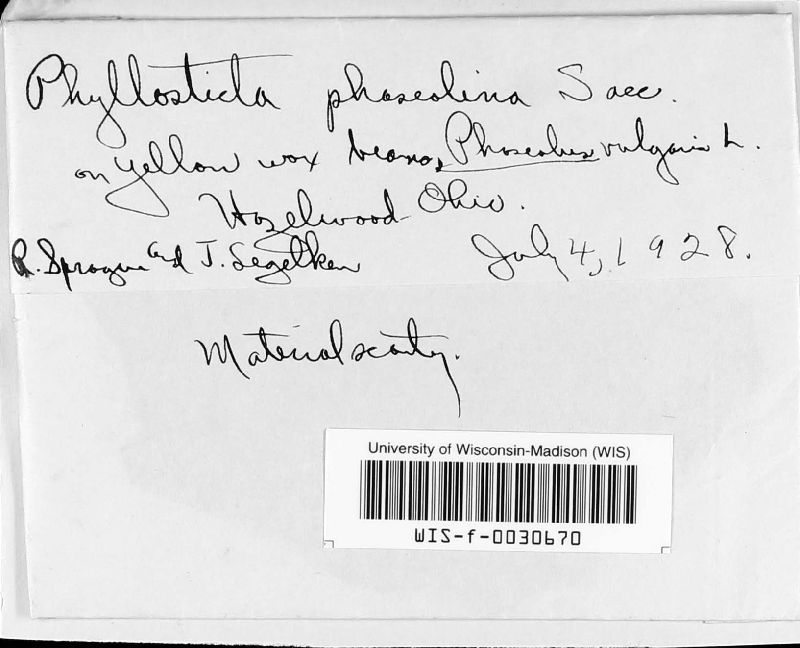 Phyllosticta phaseolina Sacc.
on yellow wax beans, Phaseolus vulgaris L.
Hazelwood Ohio.
R. Sprague and J. Segelken July 4, 1928.
Material scanty.
University of Wisconsin-Madison (WIS)
WIS-f-0030670